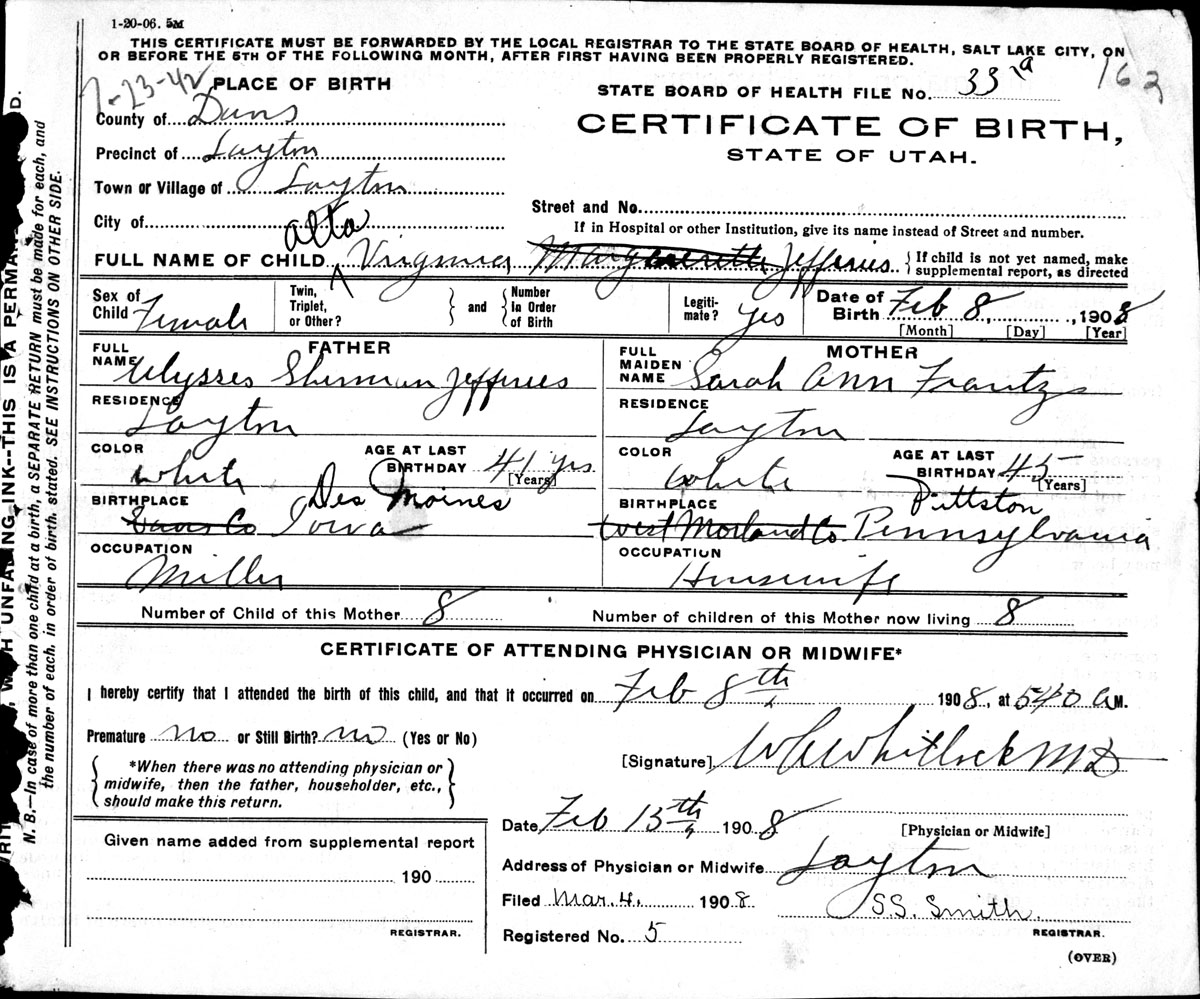 1-20-06. 5M
THIS CERTIFICATE MUST BE FORWARDED BY THE LOCAL REGISTRAR TO THE STATE BOARD OF HEALTH, SALT LAKE CITY, ON
OR BEFORE THE 5TH OF THE FOLLOWING MONTH, AFTER FIRST HAVING BEEN PROPERLY REGISTERED.
7-23-42 PLACE OF BIRTH
STATE BOARD OF HEALTH FILE No. 33 162
County of Davis
CERTIFICATE OF BIRTH,
STATE OF UTAH.
Precinct of Layton
Town or Village of Layton
City of
Street and No.
If in Hospital or other Institution, give its name instead of Street and number.
Alta
FULL NAME OF CHILD Virginia Jefferies { If child is not yet named, make supplemental report, as directed
Sex of Child Female Twin, Triplet, or Other? } and { Number in Order of Birth Legiti-mate? Yes Date of Birth Feb 8, 1908
[Month] [Day] [Year]
FATHER
FULL NAME Ulysses Sherman Jefferies
MOTHER
FULL MAIDEN NAME Sarah Ann Frantz
RESIDENCE Layton
RESIDENCE Layton
COLOR White AGE AT LAST BIRTHDAY 41 yrs [Years]
COLOR White AGE AT LAST BIRTHDAY 45 [Years]
BIRTHPLACE Davis Co Des Moines Iowa
BIRTHPLACE West Morland Co. Pittston Pennsylvania
OCCUPATION Miller
OCCUPATION Housewife
Number of Child of this Mother 8 Number of children of this Mother now living 8
CERTIFICATE OF ATTENDING PHYSICIAN OR MIDWIFE*
I hereby certify that I attended the birth of this child, and that it occurred on Feb 8th 1908, at 540 A M.
Premature no or Still Birth? no (Yes or No)
[Signature] Whitlock MD
{ *When there was no attending physician or midwife, then the father, householder, etc., should make this return. }
Date Feb 13th 1908
[Physician or Midwife]
Given name added from supplemental report
190
REGISTRAR.
Address of Physician or Midwife Layton
Filed Mar. 4. 1908. S.S. Smith.
REGISTRAR.
Registered No. 5
(OVER)
N. B.—In case of more than one child at a birth, a SEPARATE RETURN must be made for each, and
the number of each, in order of birth, stated. SEE INSTRUCTIONS ON OTHER SIDE.
UNFADING INK--THIS IS A